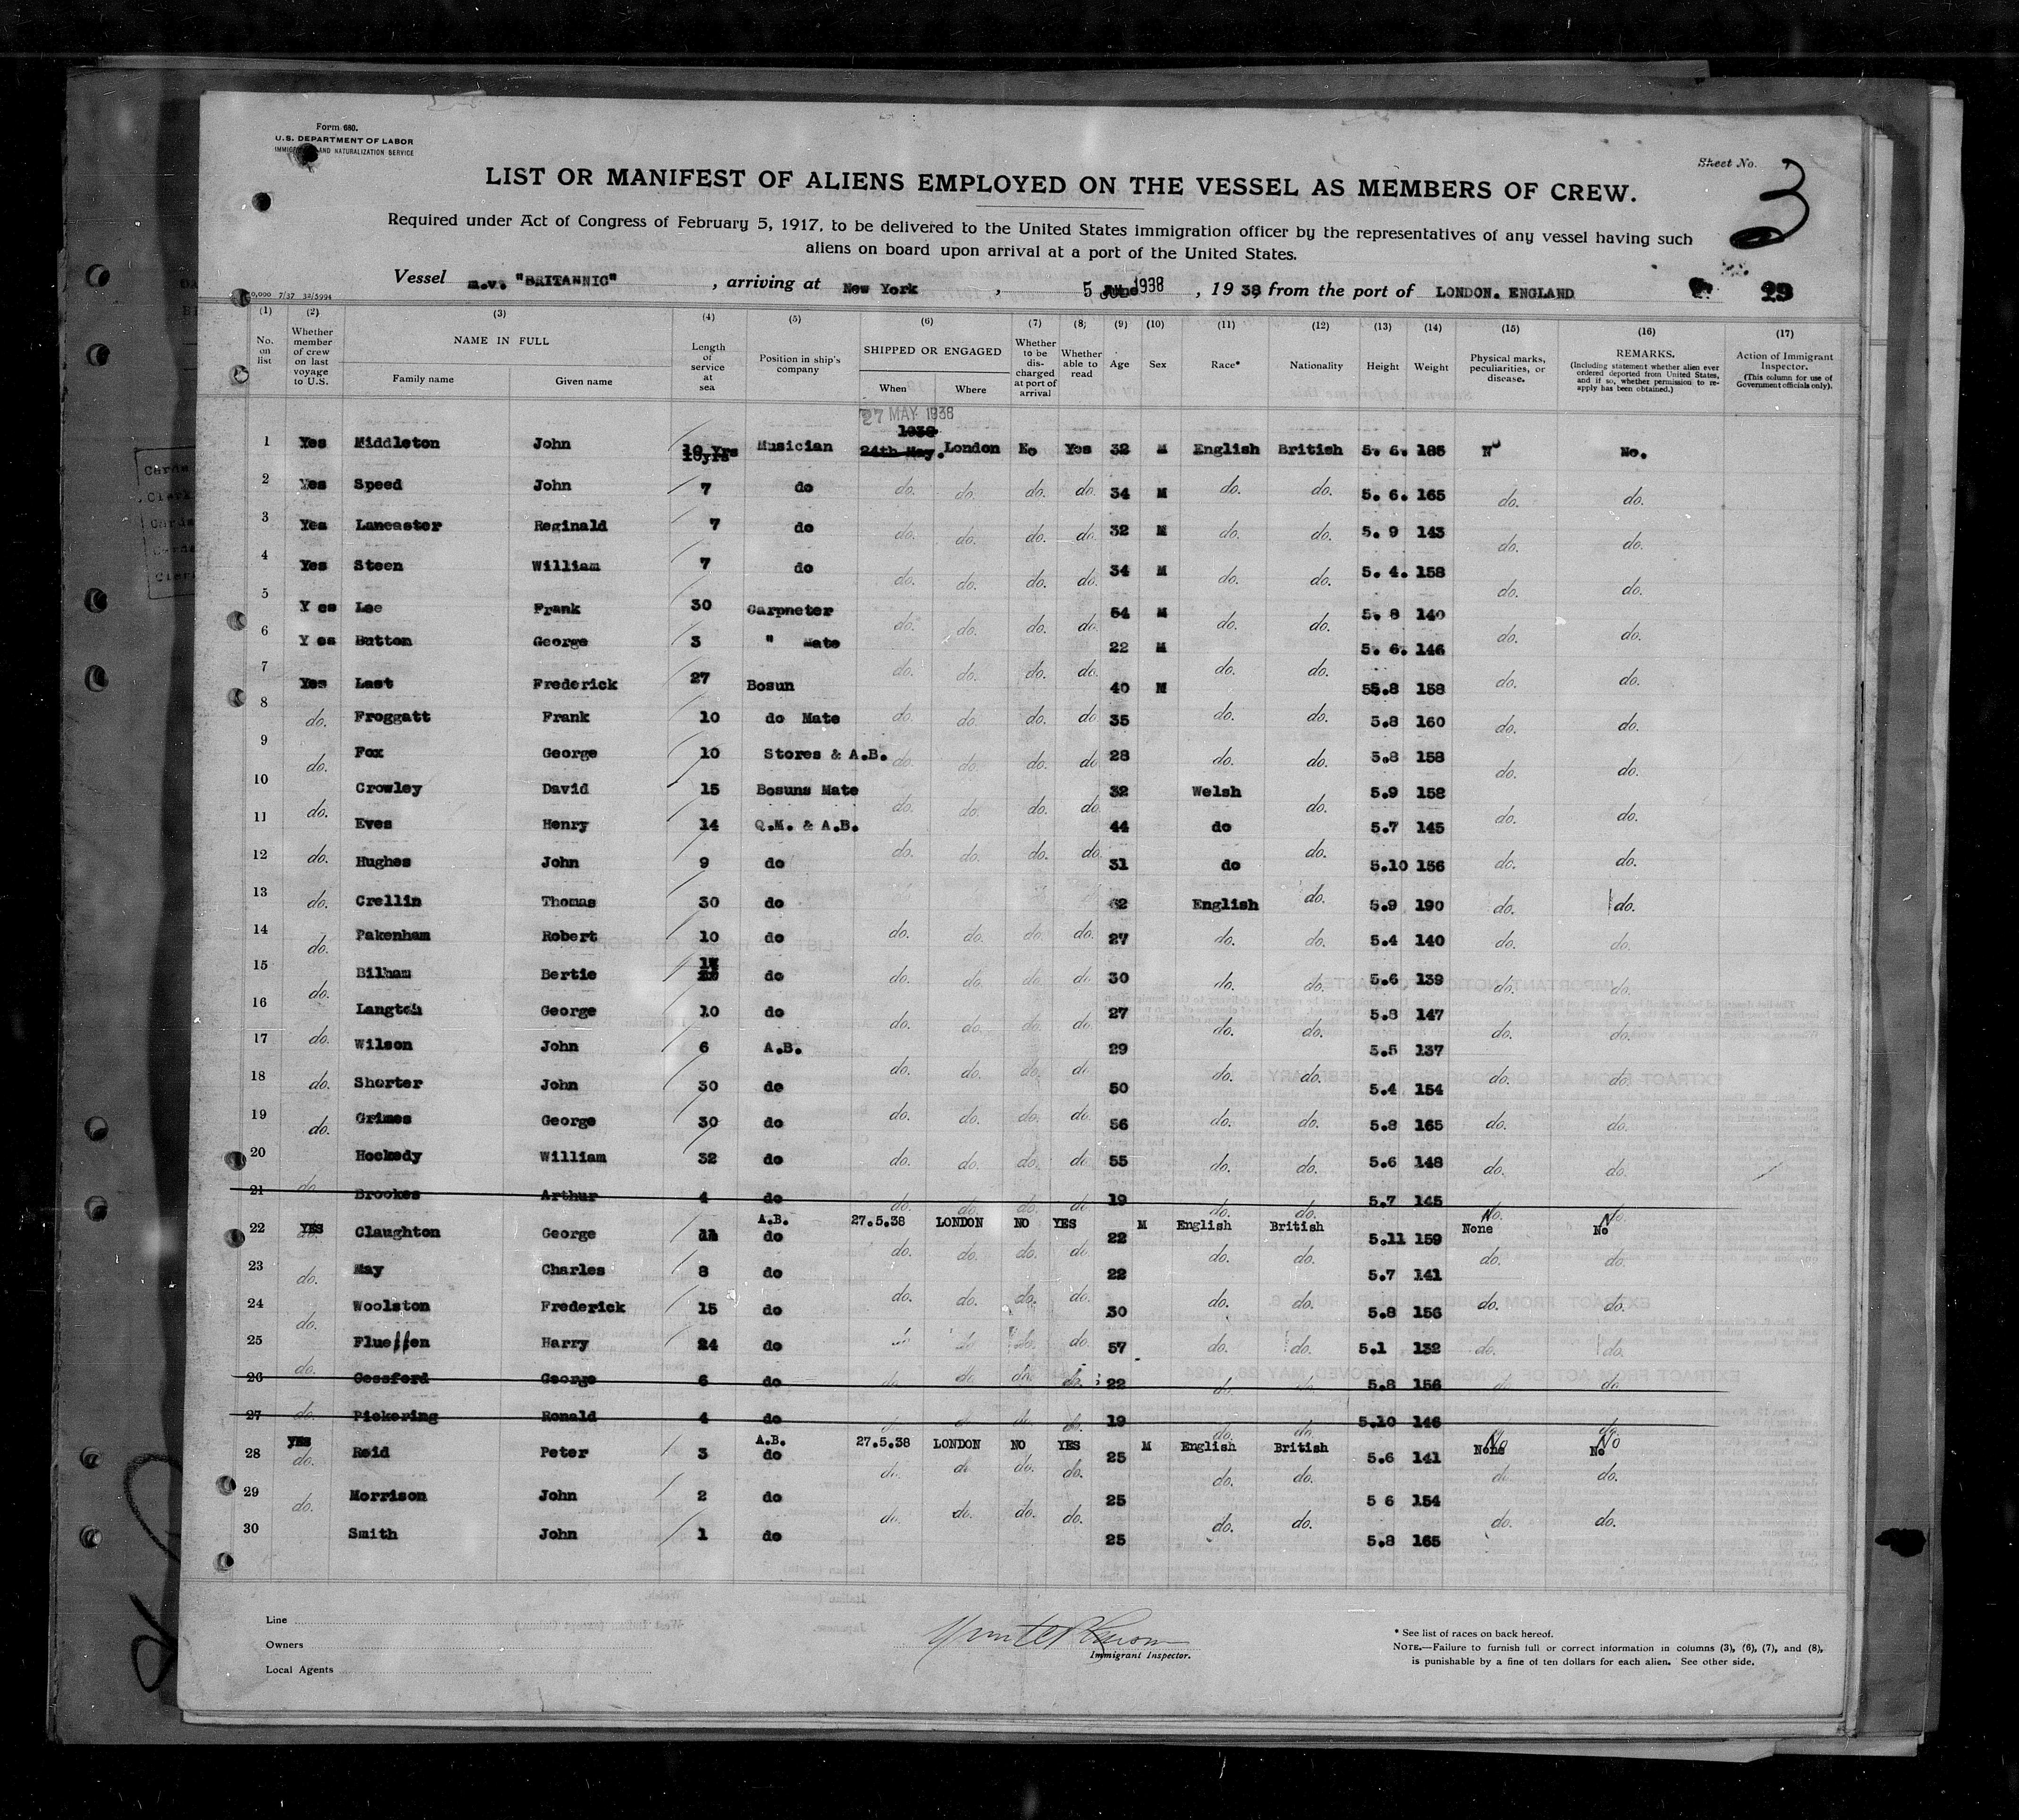 Form 680.
U.S. DEPARTMENT OF LABOR
AND NATURALIZATION SERVICE
Sheet No. 3
LIST OR MANIFEST OF ALIENS EMPLOYED ON THE VESSEL AS MEMBERS OF CREW.
Required under Act of Congress of February 5, 1917, to be delivered to the United States immigration officer by the representatives of any vessel having such
aliens on board upon arrival at a port of the United States.
Vessel m.v. "BRITANNIC", arriving at New York, 5 June 1938, 1938 from the port of LONDON. ENGLAND 29
(1) (2) (3) (4) (5) (6) (7) (8) (9) (10) (11) (12) (13) (14) (15) (16) (17)
No. on list
Whether member of crew on last voyage to U.S.
NAME IN FULL
Family name Given name
Length of service at sea
Position in ship's company
SHIPPED OR ENGAGED
When Where
Whether to be discharged at port of arrival
Whether able to read
Age Sex Race* Nationality Height Weight
Physical marks, peculiarities, or disease.
REMARKS.
(Including statement whether alien ever ordered deported from United States, and if so, whether permission to reapply has been obtained.)
Action of Immigrant Inspector.
(This column for use of Government officials only).
27 MAY 1938
1938
1 Yes Middleton John 10yrs Musician 24th May. London No Yes 32 M English British 5. 6. 185 N No.
2 Yes Speed John 7 do do. do. do. do. 34 M do. do. 5. 6. 165 do. do.
3 Yes Lancaster Reginald 7 do do. do. do. do. 32 M do. do. 5. 9 143 do. do.
4 Yes Steen William 7 do do. do. do. do. 34 M do. do. 5. 4. 158 do. do.
5 Y es Lee Frank 30 Carpneter do. do. do. do. 54 M do. do. 5. 8 140 do. do.
6 Y es Button George 3 " Mate do. do. do. do. 22 M do. do. 5. 6. 146 do. do.
7 Yes Last Frederick 27 Bosun 40 M 55.8 158
8 do. Froggatt Frank 10 do Mate do. do. do. do 35 do. do. 5.8 160 do. do.
9 do. Fox George 10 Stores & A.B. do. do. do. do 28 do. do. 5.8 158 do. do.
10 do. Crowley David 15 Bosuns Mate do. do. do. do. 32 Welsh do. 5.9 158 do. do.
11 do. Eves Henry 14 Q.M. & A.B. do. do. do. do. 44 do do. 5.7 145 do. do.
12 do. Hughes John 9 do 31 do 5.10 156
13 do. Crellin Thomas 30 do 62 English do. 5.9 190 do. do.
14 do. Pakenham Robert 10 do do. do. do. do. 27 do. do. 5.4 140 do. do.
15 do. Bilham Bertie do do. do. do. do. 30 do. do. 5.6 139 do. do.
16 do. Langton George 10 do do. do. do. do. 27 do. do. 5.8 147 do. do.
17 do. Wilson John 6 A.B. do. do. do. do 29 do. do. 5.5 137 do. do.
18 do. Shorter John 30 do do. do. do. do 50 5.4 154
19 do. Grimes George 30 do do. do. do. do 56 do. do. 5.8 165 do. do.
20 do. Hockedy William 32 do do. do. do. do 55 do. do. 5.6 148 do. do.
21 Brookes Arthur 4 do do. do. do. do 19 do. do. 5.7 145 No. No
22 YES do. Claughton George A.B. do 27.5.38 LONDON NO YES 22 M English British 5.11 159 None No
23 do. May Charles 8 do do. do. do. do 22 do. do. 5.7 141 do. do.
24 do. Woolston Frederick 15 do do. do. do. do. 30 do. do. 5.8 156 do. do.
25 do. Fluellen Harry 24 do do do do. do. 57 do. do. 5.1 132 do. do.
26 do. Gessford George 6 do do. do. do. do. 22 do. do. 5.8 156 do. do.
27 Pickering Ronald 4 do do do do do. 19 do. do. 5.10 146 do.
28 YES do. Reid Peter 3 A.B. do 27.5.38 LONDON NO YES 25 M English British 5.6 141 None No
29 do. Morrison John 2 do do. do. do. do. 25 do. do. 5 6 154 do. do.
30 Smith John 1 do do. do. do. do. 25 do. do. 5.8 165 do. do.
Line
Owners
Local Agents
Immigrant Inspector.
* See list of races on back hereof.
NOTE.—Failure to furnish full or correct information in columns (3), (6), (7), and (8),
is punishable by a fine of ten dollars for each alien. See other side.